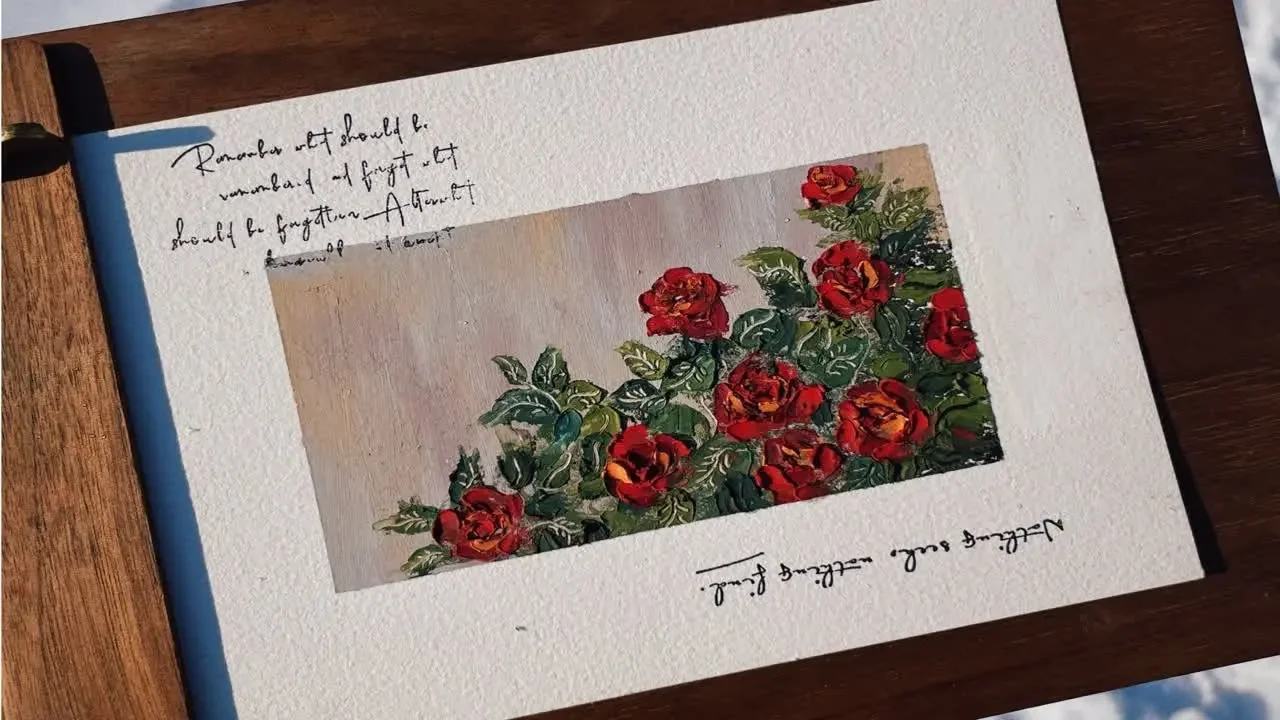 Remember what should be
remembered and forget what
should be forgotten. Alter what
Nothing seeks nothing find.